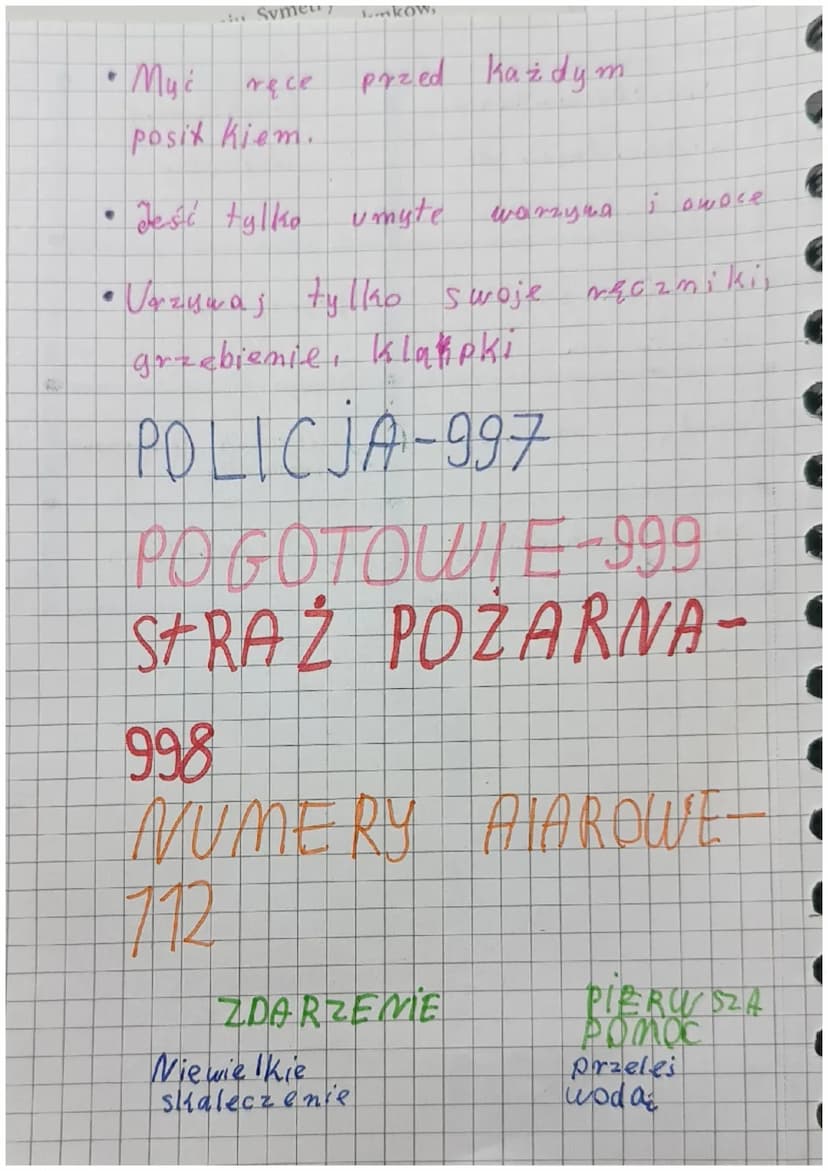 • Myć ręce przed każdym
posiłkiem.
• Jeść tylko umyte warzywa i owoce
• Urzywaj tylko swoje ręczniki,
grzebienie, klapki
POLICJA-997
POGOTOWIE-999
STRAŻ POŻARNA-
998
NUMERY AlAROWE-
112
ZDARZENIE
PIERWSZA
POMOC
Niewielkie
skaleczenie
przelej
wodą